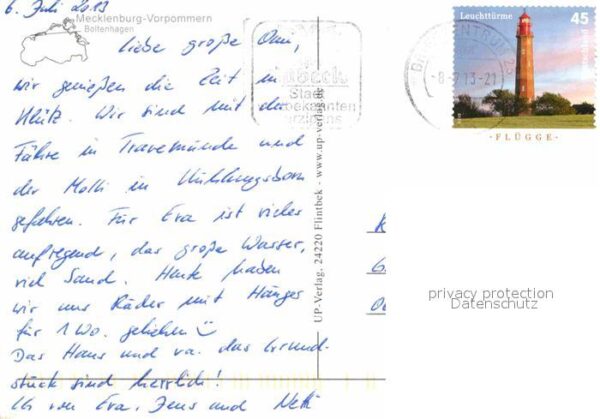 6. Juli 2013
Mecklenburg-Vorpommern
Boltenhagen
liebe große Omi,
wir genießen die Zeit in
Klütz. Wir sind mit der
Fähre in Travemünde und
der Molli in Kühlungsborn
gefahren. Für Eva ist vieles
aufregend, das große Wasser,
viel Sand. Heute haben
wir uns Räder mit Hänger
für 1 Wo. geliehen
Das Haus und va. das Grund-
stück sind herrlich!
Ihr von Eva, Jens und
UP-Verlag, 24220 Flintbek - www.up-verlag.de
Stadt
Leuchttürme
45
Deutschland
-FLÜGGE-
BRIEFZENTRUM 23
-8-7 13-21
privacy protection
Datenschutz